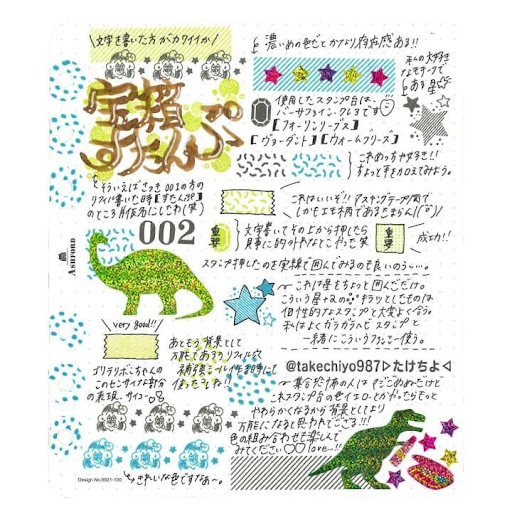 文字を書いた方がカワイイか
宝箱
すたんぷ
濃いめの色だとかなり存在感ある!!
私の大好き
なモチーフで
ある星
使用したスタンプ台は、
バーサファイン・クレアです
[フォーリンリーブス]
[ヴァーダント] [ウォームブリーズ]
これめっちゃ好き!!
ちょっと手をカロえてみよう。
そういえばさっき001の方の
リフィル書いた時[すたんぷ]
のところ片仮名にしちゃた(笑)
これはいいぞ!! マスキングテープ風で
しかもエモ柄であるきまらん!
002
重要
文字書いてその上から押したら
見事に的外れなとこやった笑
重要
成功!!
スタンプ押したのを実線で囲んでみるのも良いのう〜…。
ASHFORD
これは星をちょっと囲んだだけ。
こういう星+αの キラッとしたものは
個性的なスタンプと大変よく合う。
私はよくガラガラヘビスタンプと
一緒にこういうフレーク使う。
very good!!
あともう背景として
万能であるのリフィル穴
補強シール作る時にて
使ったらしい!
ゴリラリボンちゃんの
このセンザイな部分
の表現、サイコー
@takechiyo987▷たけちよ◁
集合が苦手の人はすごごめんだけど
このスタンプ台の色イエローとかだったらもっと
やわらかくなるから背景としてより
万能になると思われでござる!!!
色の組み合わせも楽しんで
みてください♡♡love…!!
きれいな色ですなあ〜。
Design No.8921-100